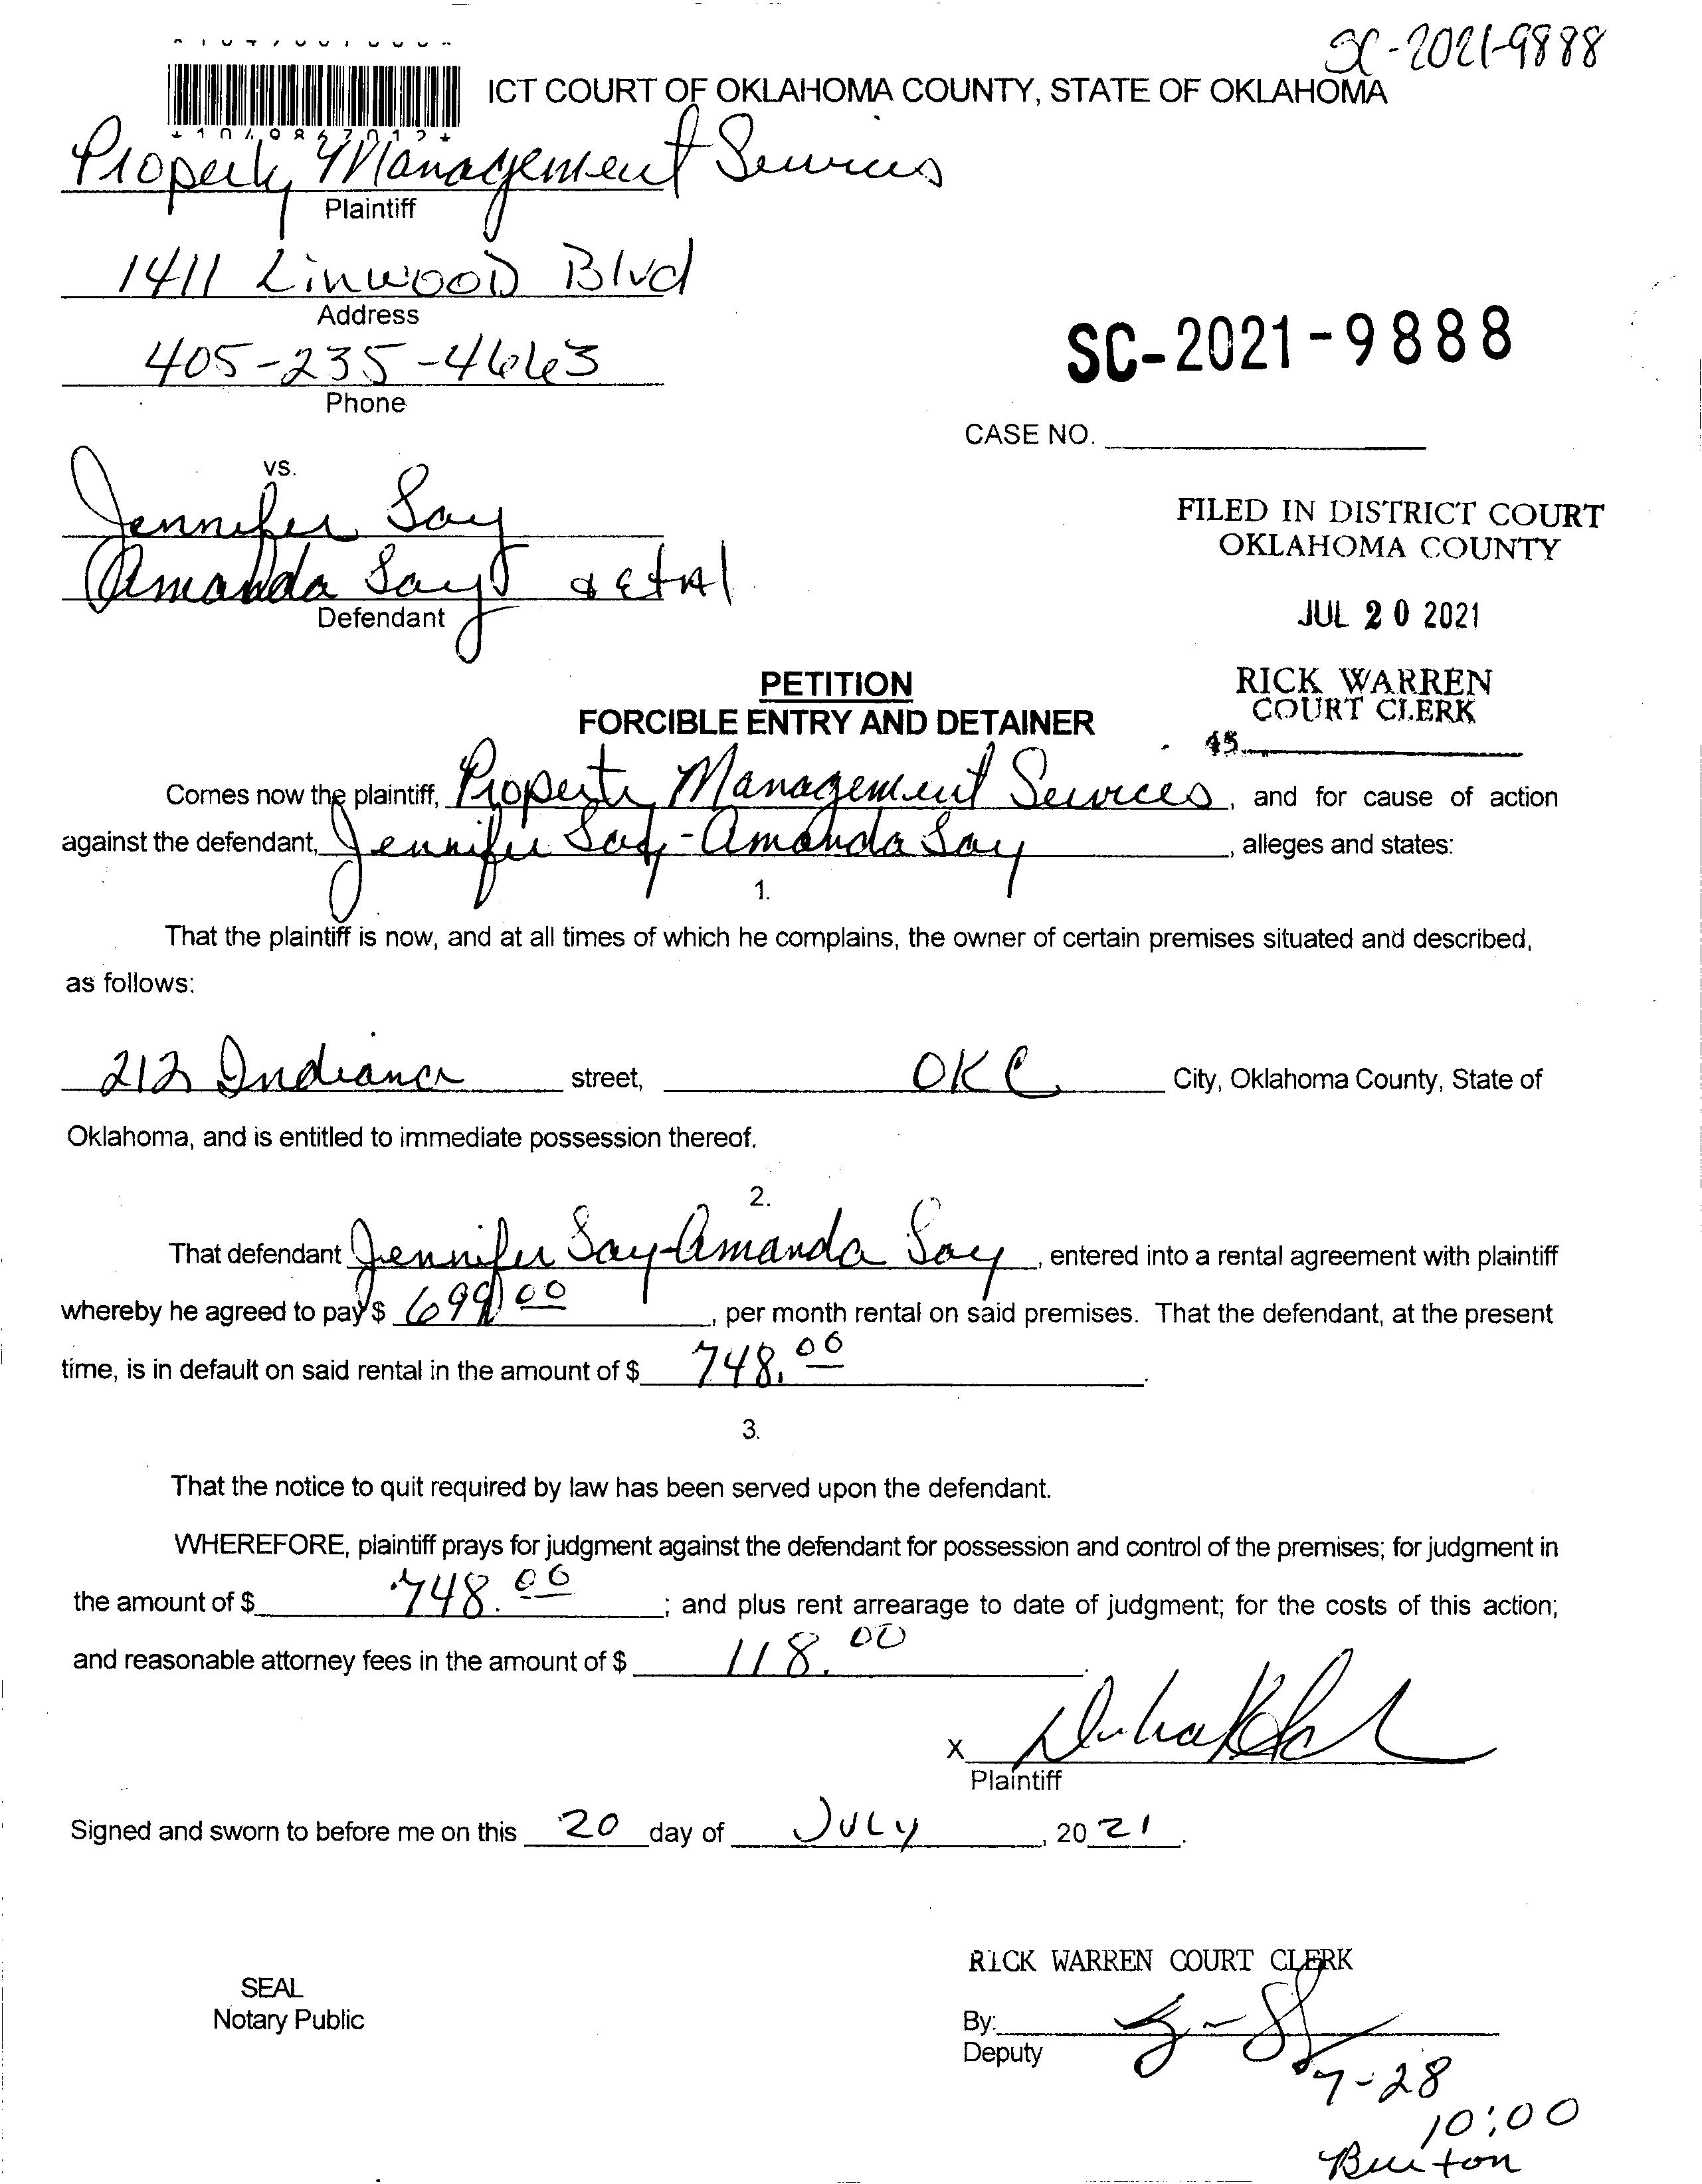 SC-2021-9888
ICT COURT OF OKLAHOMA COUNTY, STATE OF OKLAHOMA
Property Management Services
Plaintiff
1411 Linwood Blvd
Address
405-235-4663
Phone
SC-2021-9888
CASE NO.
vs.
Jennifer Say
Amanda Say & etAl
Defendant
FILED IN DISTRICT COURT
OKLAHOMA COUNTY
JUL 20 2021
RICK WARREN
COURT CLERK
45
PETITION
FORCIBLE ENTRY AND DETAINER
Comes now the plaintiff, Property Management Services, and for cause of action
against the defendant, Jennifer Say - Amanda Say, alleges and states:
1.
That the plaintiff is now, and at all times of which he complains, the owner of certain premises situated and described,
as follows:
212 Indiana street, OKC City, Oklahoma County, State of
Oklahoma, and is entitled to immediate possession thereof.
2.
That defendant Jennifer Say-Amanda Say, entered into a rental agreement with plaintiff
whereby he agreed to pay $ 699 00, per month rental on said premises. That the defendant, at the present
time, is in default on said rental in the amount of $ 748.00.
3.
That the notice to quit required by law has been served upon the defendant.
WHEREFORE, plaintiff prays for judgment against the defendant for possession and control of the premises; for judgment in
the amount of $ 748.00; and plus rent arrearage to date of judgment; for the costs of this action;
and reasonable attorney fees in the amount of $ 118.00.
X
Plaintiff
Signed and sworn to before me on this 20 day of JULY, 2021.
RICK WARREN COURT CLERK
SEAL
Notary Public
By:
Deputy
7-28
10:00
Burton